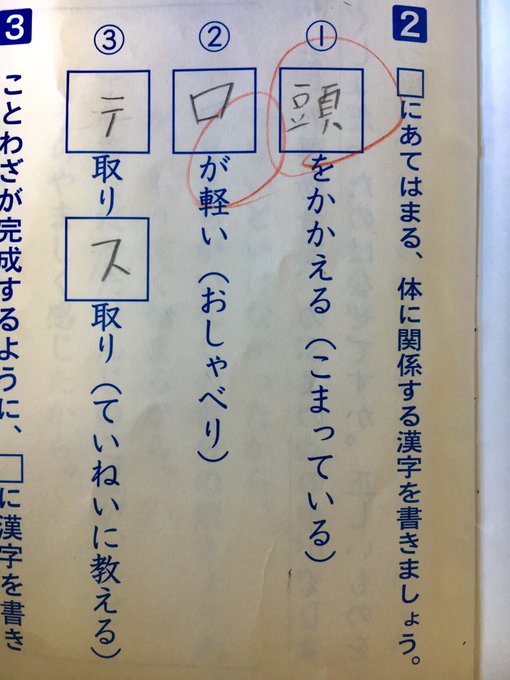 2 □にあてはまる、体に関係する漢字を書きましょう。
① 頭をかかえる（こまっている）
② 口が軽い（おしゃべり）
③ テ取りス取り（ていねいに教える）
3 ことわざが完成するように、□に漢字を書き